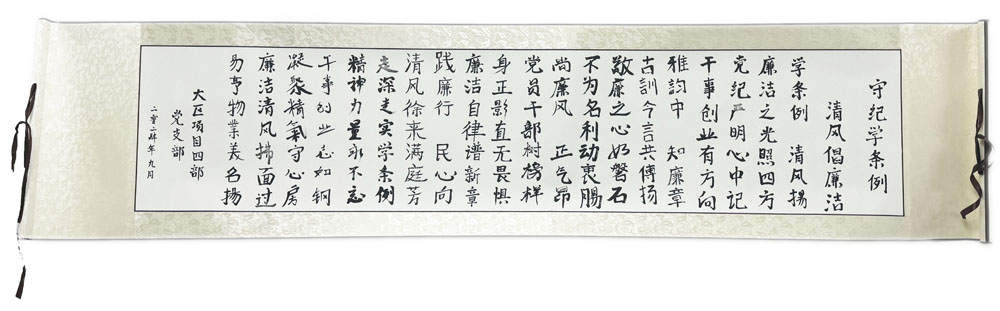 守纪学条例
清风倡廉洁
学条例 清风揚
廉洁之光照四方
党纪严明心中记
干事创业有方向
雅韵中 知廉章
古训今言共傳扬
敬廉之心如磐石
不为名利动衷腸
尚廉风 正气昂
党员干部树榜样
身正影直无畏惧
廉洁自律谱新章
践廉行 民心向
清风徐来满庭芳
走深走实学条例
精神力量永不忘
干事创业志如钢
凝聚精氣守心房
廉洁清风拂面过
易亨物業美名揚
大区项目四部
党支部
二零二肆年九月